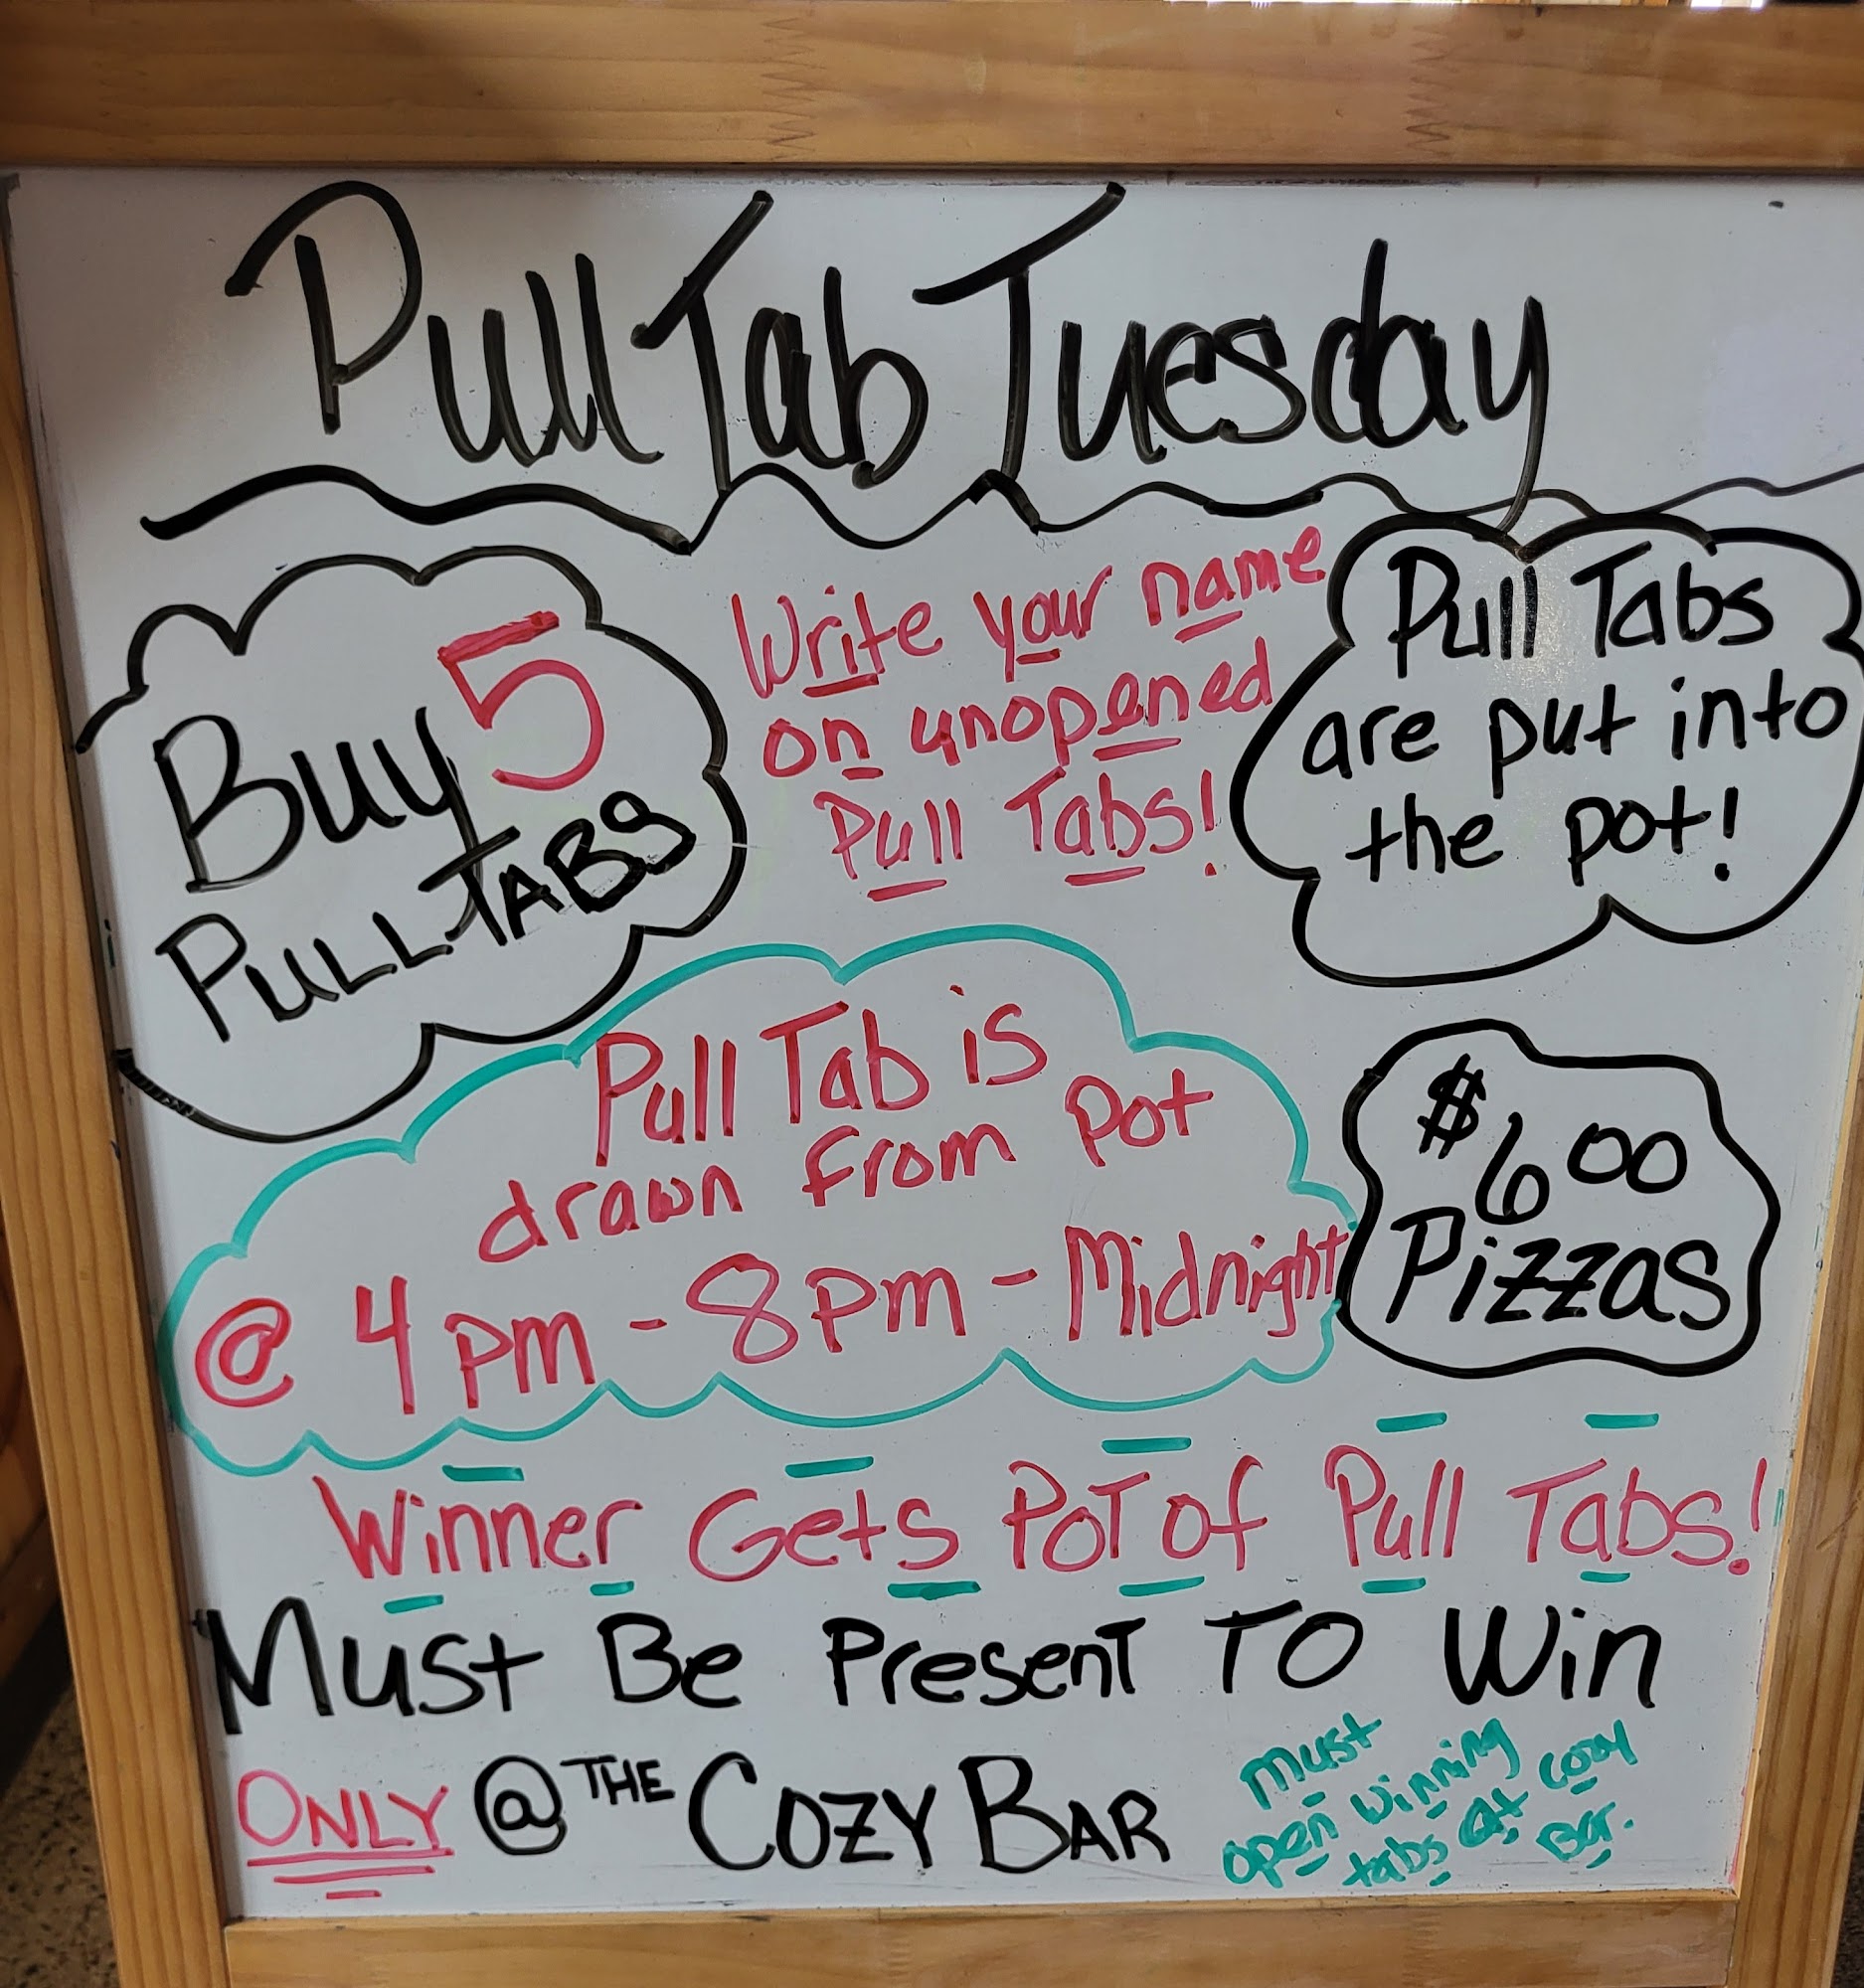 Pull Tab Tuesday
Buy 5
PULL-TABS
Write your name
on unopened
Pull Tabs!
Pull Tabs
are put into
the pot!
Pull Tab is
drawn from pot
@ 4pm - 8pm - Midnight
$6.00
Pizzas
Winner Gets POT of Pull Tabs!
Must Be Present TO Win
ONLY @ THE COZY BAR
must
open winning
tabs at cozy
Bar.